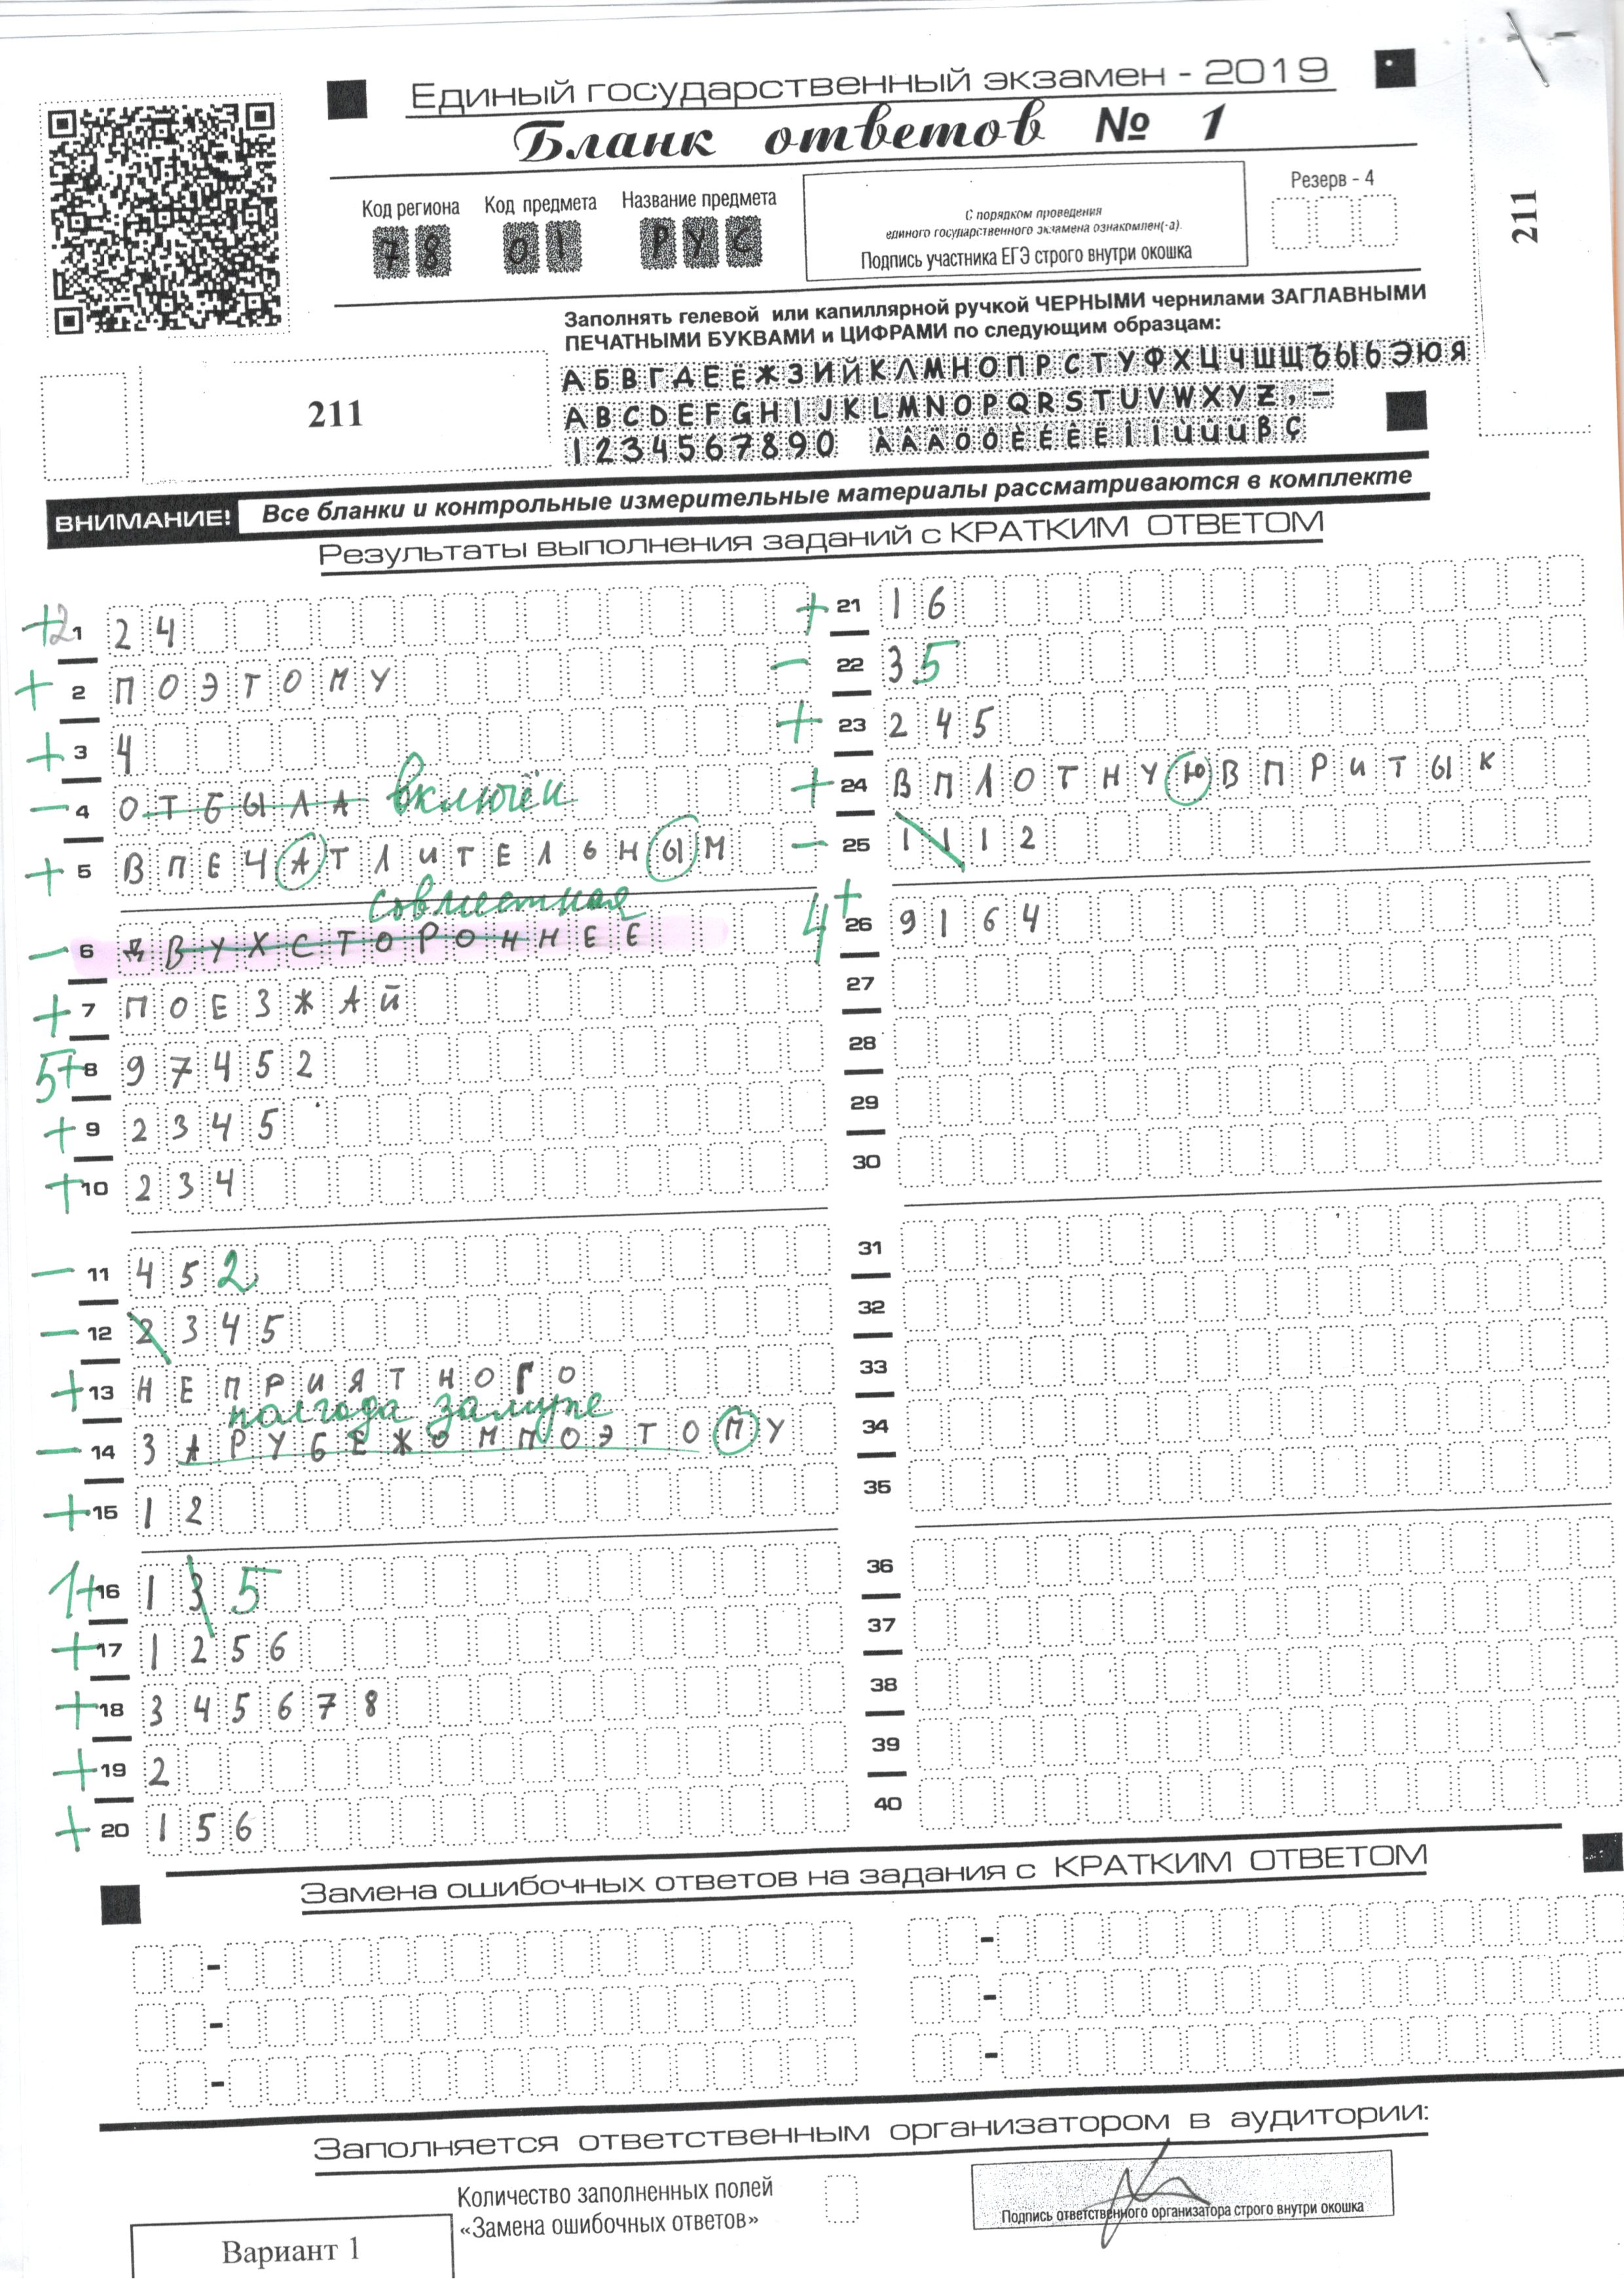 Единый государственный экзамен - 2019
Бланк ответов № 1
Код региона Код предмета Название предмета
78 01 РУС
С порядком проведения
единого государственного экзамена ознакомлен(-а).
Подпись участника ЕГЭ строго внутри окошка
Резерв - 4
211
Заполнять гелевой или капиллярной ручкой ЧЕРНЫМИ чернилами ЗАГЛАВНЫМИ
ПЕЧАТНЫМИ БУКВАМИ и ЦИФРАМИ по следующим образцам:
АБВГДЕЁЖЗИЙКЛМНОПРСТУФХЦЧШЩЪЫЬЭЮЯ
ABCDEFGHIJKLMNOPQRSTUVWXYZ,-
1234567890 ÀÂÄÖÔÈÉÊËÎÏÙÛÜßÇ
211
ВНИМАНИЕ! Все бланки и контрольные измерительные материалы рассматриваются в комплекте
Результаты выполнения заданий с КРАТКИМ ОТВЕТОМ
+2 1 24
+ 2 ПОЭТОМУ
+ 3 4
- 4 ОТБЫЛА включён
+ 5 ВПЕЧАТЛИТЕЛЬНЫМ
совместная
- 6 ДВУХСТОРОННЕЕ
+ 7 ПОЕЗЖАЙ
5+ 8 97452
+ 9 2345
+ 10 234
- 11 452
- 12 2345
+ 13 НЕПРИЯТНОГО
полгода замуже
- 14 ЗАРУБЕЖОМПОЭТОМУ
+ 15 12
1+ 16 13 5
+ 17 1256
+ 18 345678
+ 19 2
+ 20 156
+ 21 16
- 22 35
+ 23 245
+ 24 ВПЛОТНУЮВПРИТЫК
- 25 1112
4+ 26 9164
27
28
29
30
31
32
33
34
35
36
37
38
39
40
Замена ошибочных ответов на задания с КРАТКИМ ОТВЕТОМ
Заполняется ответственным организатором в аудитории:
Количество заполненных полей
«Замена ошибочных ответов»
Подпись ответственного организатора строго внутри окошка
Вариант 1